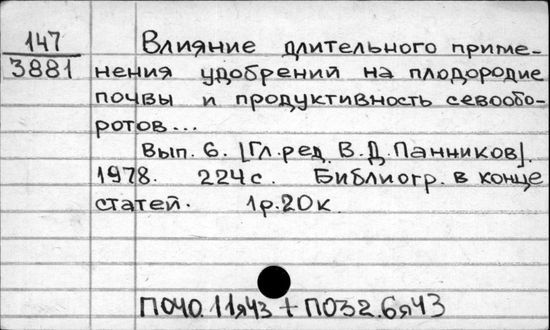 147
3881
Влияние длительного приме-
нения удобрений на плодородие
почвы и продуктивность севообо-
ротов...
Вып. 6. [Гл.ред. В.Д.Панников].
1978. 224с. Библиогр. в конце
статей. 1р.20к.
П040.11я43 + П032.6я43